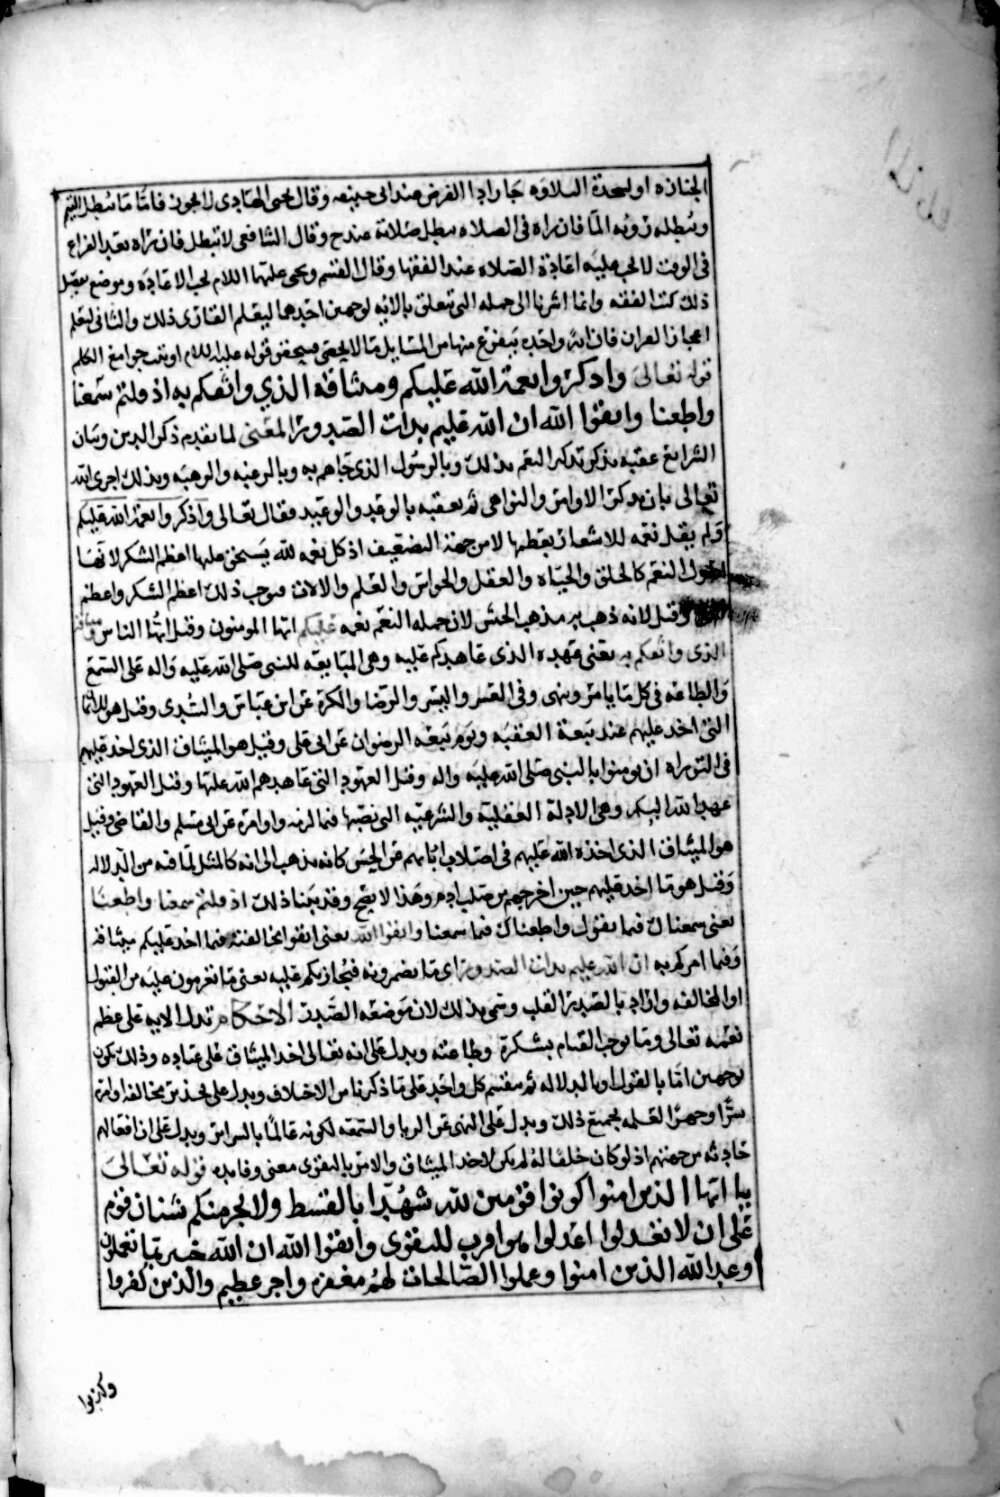 الجنازه او لسجدة التلاوه جاز اداء الفرض عند ابى حنيفه وقال يحيى الهادى لا يجوز فاما ما يبطل التيمم
ويبطله رؤية الما فان راه فى الصلاه بطل صلاته عند ح وقال الشافعى لا تبطل فان راه بعد الفراغ
فى الوقت لا يجب عليه اعادة الصلاه عند الفقها وقال القسم ويحيى عليهما السلام يجب الاعاده وموضع تفصيل
ذلك كتب الفقه وانما اشرنا الى جمله التى تتعلق بالايه لوجهين احدهما ليعلم القارى ذلك والثانى ليعلم
اعجاز القران فان ايه واحده يتفرع منها من المسايل ما لا يحصى فيتحقق قوله عليه السلام اوتيت جوامع الكلم
قوله تعالى واذكروا نعمة الله عليكم وميثاقه الذي واثقكم به اذ قلتم سمعنا
واطعنا واتقوا الله ان الله عليم بذات الصدور المعنى لما تقدم ذكر الدين وبيان
الشرائع عقبه بذكر تذكير النعم بذلك وبالرسول الذى جاهم به وبالرغبه والرهبه وبذلك اجرى الله
تعالى بان يذكر الاوامر والنواهى ثم يعقبه بالوعد والوعيد فقال تعالى واذكروا نعمة الله عليكم
ولم يقل نعمه للاشعار بعظمها لا من جهة التضعيف اذ كل نعمه لله يستحق عليها اعظم الشكر لانها
اصول النعم كالخلق والحياه والعقل والحواس والعلم والالات فوجب ذلك اعظم الشكر واعظم
وقيل لانه ذهب به مذهب الجنس لان جمله النعم نعمه عليكم ايها المومنون وقيل ايها الناس وميثاقه
الذى واثقكم به يعنى عهده الذى عاهدكم عليه وهى المبايعه للنبى صلى الله عليه واله على السمع
والطاعه فى كل ما يامر وينهى وفى العسر واليسر والرضا والكره عن ابن عباس والسدى وقيل هو
التى اخذ عليهم عند بيعة العقبه ويوم بيعه الرضوان عن ابى على وقيل هو الميثاق الذى اخذ عليهم
فى التوراه ان يومنوا بالنبى صلى الله عليه واله وقيل العهود التى عاهدهم الله عليها وقيل العهود التى
عهد الله اليكم وهى الادلة العقلية والشرعيه التى نصبها فيما لزمه واوامره عن ابى مسلم والقاضى وقيل
هو الميثاق الذى اخذه الله عليهم فى اصلاب ابائهم عن الحسن كانه يذهب الى انه كالمثل لما فيه من الدلاله
وقيل هو ما اخذ عليهم حين اخرجهم من صلب ادم وهذا لا يصح وقد بينا ذلك اذ قلتم سمعنا واطعنا
يعنى سمعناك فيما تقول واطعناك فيما سمعنا واتقوا الله يعنى اتقوا مخالفته فيما اخذ عليكم ميثاقه
وفيما امركم به ان الله عليم بذات الصدور اى ما تضمرونه فيجازيكم عليه يعنى ما تعزمون عليه من القبول
او المخالفه واراد بالصدر القلب وسمى بذلك لان موضعه الصدر الاحكام تدل الايه على عظم
نعمه تعالى وما يوجب القيام بشكره وطاعته ويدل على انه تعالى اخذ الميثاق على عباده وذلك يكون
بوجهين اما بالقول او بالدلاله ثم ينقسم كل واحد على ما ذكرنا من الاختلاف ويدل على تحذير مخالفه اوامره
سرا وجهرا لعلمه بجميع ذلك ويدل على النهى عن الريا والسمعه لكونه عالما بالسراير ويدل على ان افعالهم
حادثه من جهتهم اذ لو كان خلقا له لم يكن لاخذ الميثاق والامر بالتقوى معنى وفايده قوله تعالى
يا ايها الذين امنوا كونوا قومين لله شهدا بالقسط ولا يجرمنكم شنان قوم
على ان لا تعدلوا اعدلوا هو اقرب للتقوى واتقوا الله ان الله خبير بما تعملون
وعد الله الذين امنوا وعملوا الصالحات لهم مغفره واجر عظيم والذين كفروا
وكذبوا